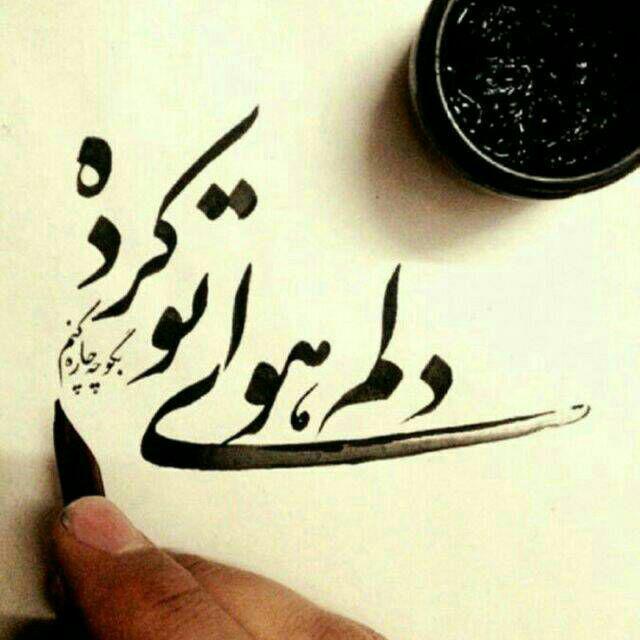 دلم هوای تو کرده
بگو چه چاره کنم